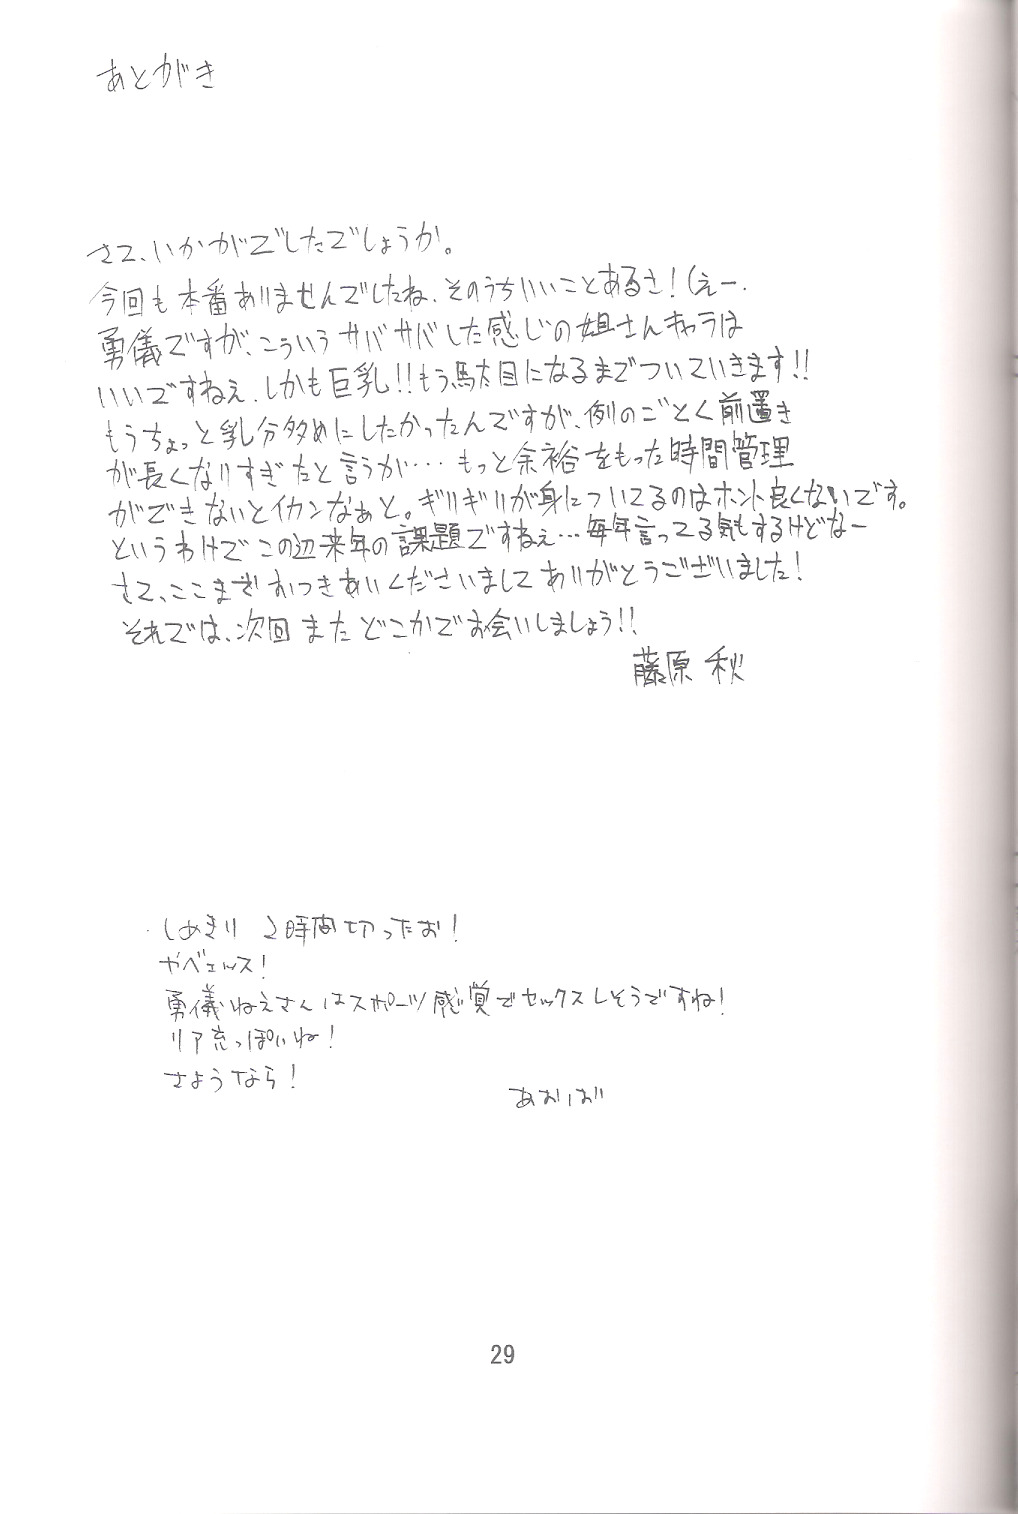 あとがき
さて、いかがでしたでしょうか。
今回も本番ありませんでしたね、そのうちいいことあるさ!(えー.
勇儀ですが、こういうサバサバした感じの姐さんキャラは
いいですねぇ.しかも巨乳!!もう駄目になるまでついていきます!!
もうちょっと乳分多めにしたかったんですが、例のごとく前置き
が長くなりすぎたと言うか… もっと余裕をもった時間管理
ができないとイカンなぁと。ギリギリが身についてるのはホント良くないです。
というわけでこの辺来年の課題ですねぇ…毎年言ってる気もするけどなー
さて、ここまでおつきあいくださいましてありがとうございました!
それでは、次回またどこかでお会いしましょう!!
藤原 秋
しめきり 2時間切ったお!
やベェッス!
勇儀ねえさんはスポーツ感覚でセックスしそうですね!
リア充っぽいね!
さようなら!
あおば
29